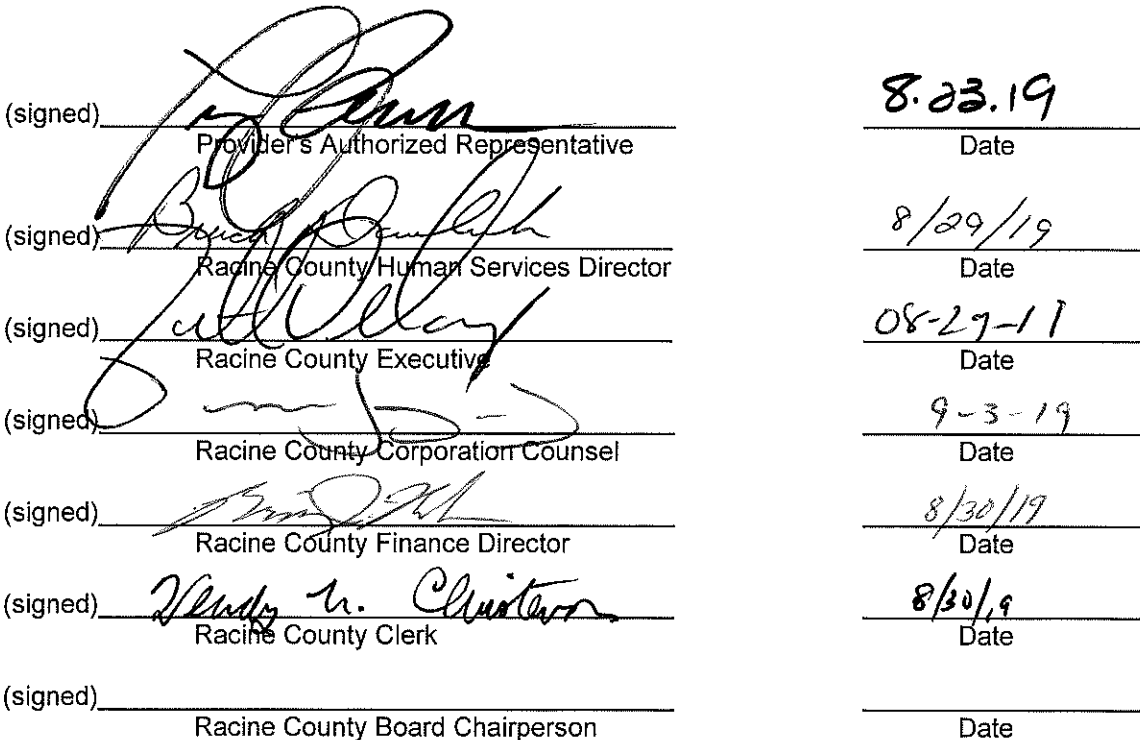 (signed) 8.23.19
Provider's Authorized Representative Date
(signed) 8/29/19
Racine County Human Services Director Date
(signed) 08-29-19
Racine County Executive Date
(signed) 9-3-19
Racine County Corporation Counsel Date
(signed) 8/30/19
Racine County Finance Director Date
(signed) Wendy M. Christensen 8/30/19
Racine County Clerk Date
(signed)
Racine County Board Chairperson Date